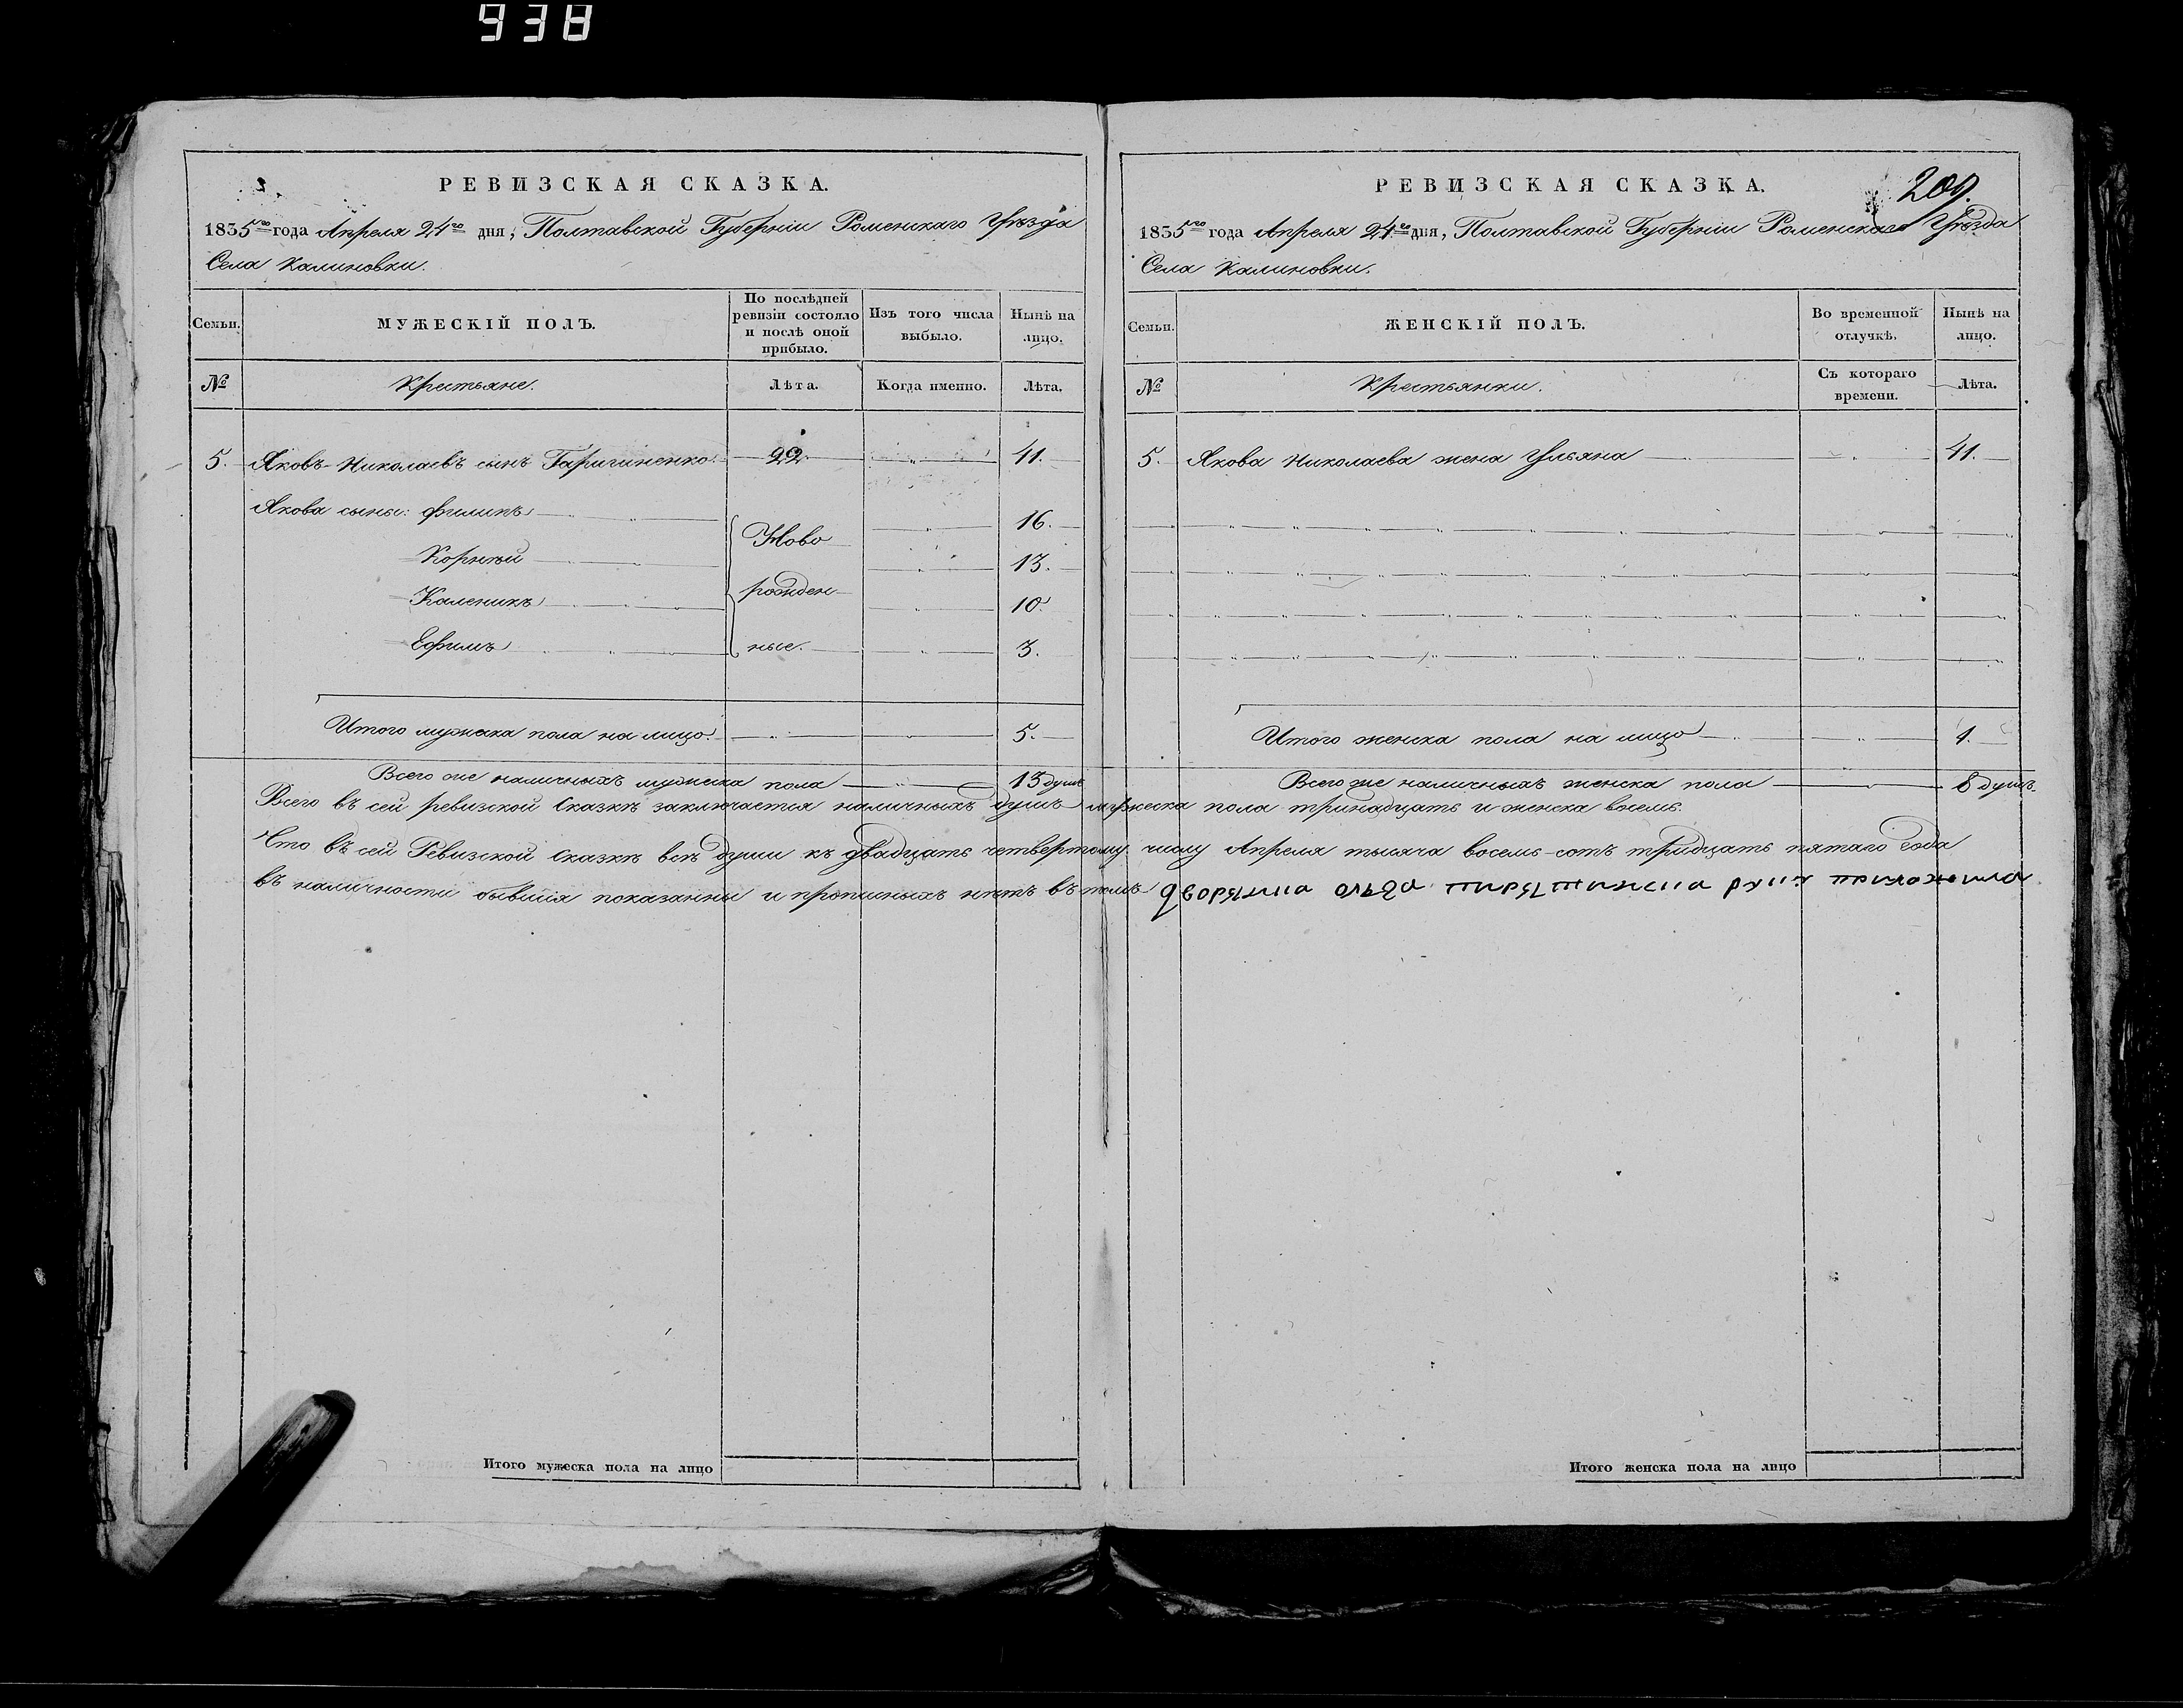 938
РЕВИЗСКАЯ СКАЗКА.
1835го года Апреля 24го дня, Полтавской Губерніи Роменскаго Уѣзда
Села Калиновки.
Семьи.
МУЖЕСКІЙ ПОЛЪ.
По послѣдней ревизіи состояло и послѣ оной прибыло.
Изъ того числа выбыло.
Нынѣ на лицо.
№
Крестьяне.
Лѣта.
Когда именно.
Лѣта.
5. Яковъ Николаевъ сынъ Гаригиненко 22 41.
Якова сыны: Филипъ Ново 16.
Корнѣй 13.
Каленикъ рожден 10.
Ефимъ ные. 3.
Итого мужеска пола на лицо. 5.
Всего же наличныхъ мужеска пола 13 душъ
Итого мужеска пола на лицо
РЕВИЗСКАЯ СКАЗКА.
209.
1835го года Апреля 24го дня, Полтавской Губерніи Роменскаго Уѣзда
Села Калиновки.
Семьи.
ЖЕНСКІЙ ПОЛЪ.
Во временной отлучкѣ.
Нынѣ на лицо.
№
Крестьянки.
Съ котораго времени.
Лѣта.
5. Якова Николаева жена Ульяна 41.
Итого женска пола на лицо 1.
Всего же наличныхъ женска пола 8 душъ.
Всего въ сей ревизской сказкѣ заключается наличныхъ душъ мужеска пола тринадцать и женска восемь.
Что въ сей Ревизской сказкѣ всѣ души къ двадцать четвертому числу Апреля тысяча восемь-сотъ тридцать пятаго года
въ наличности бывшія показанны и прописныхъ нѣтъ въ томъ
Итого женска пола на лицо